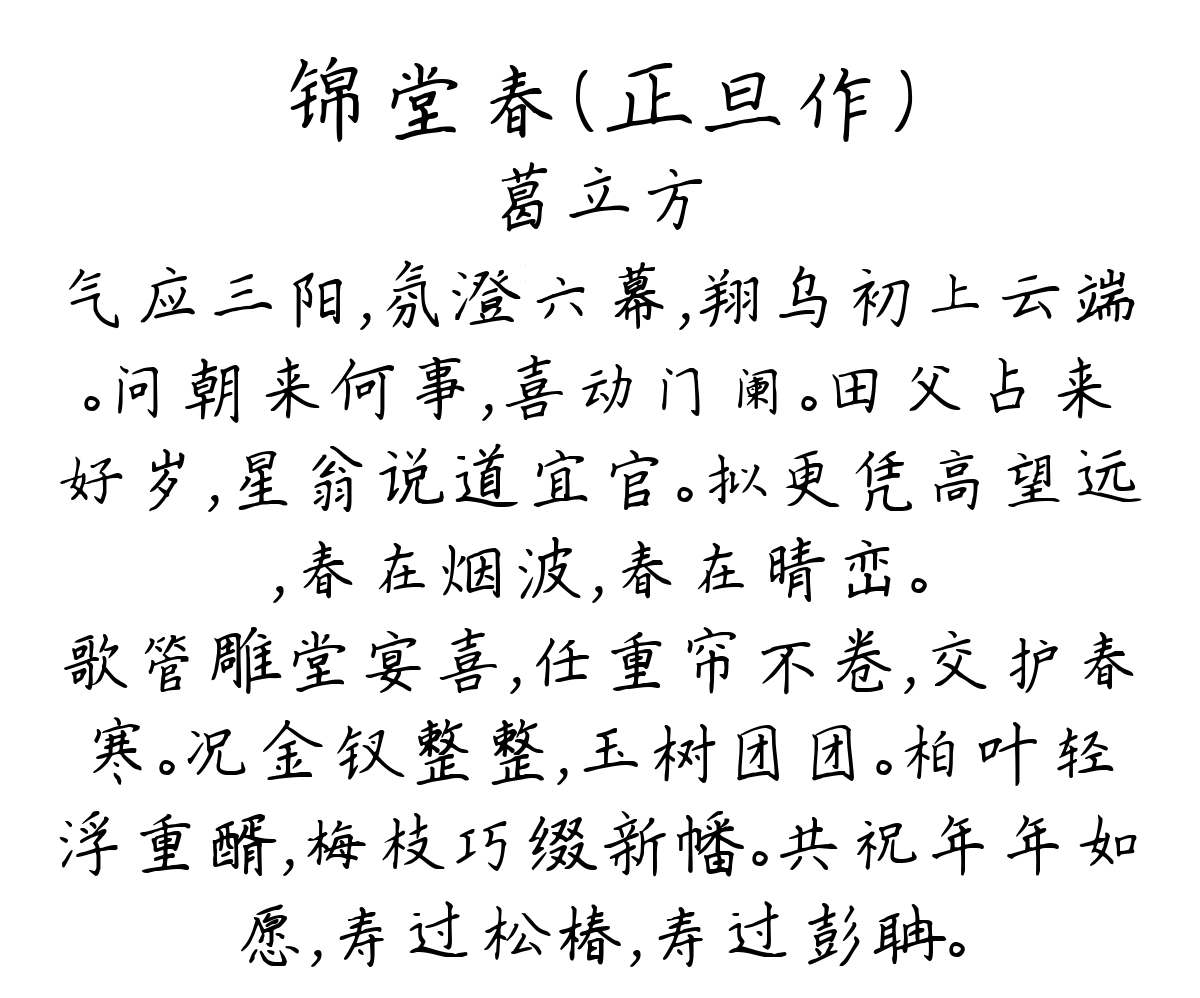 锦堂春(正旦作)
葛立方
气应三阳,氛澄六幕,翔乌初上云端
。问朝来何事,喜动门阑。田父占来
好岁,星翁说道宜官。拟更凭高望远
,春在烟波,春在晴峦。
歌管雕堂宴喜,任重帘不卷,交护春
寒。况金钗整整,玉树团团。柏叶轻
浮重醑,梅枝巧缀新幡。共祝年年如
愿,寿过松椿,寿过彭聃。